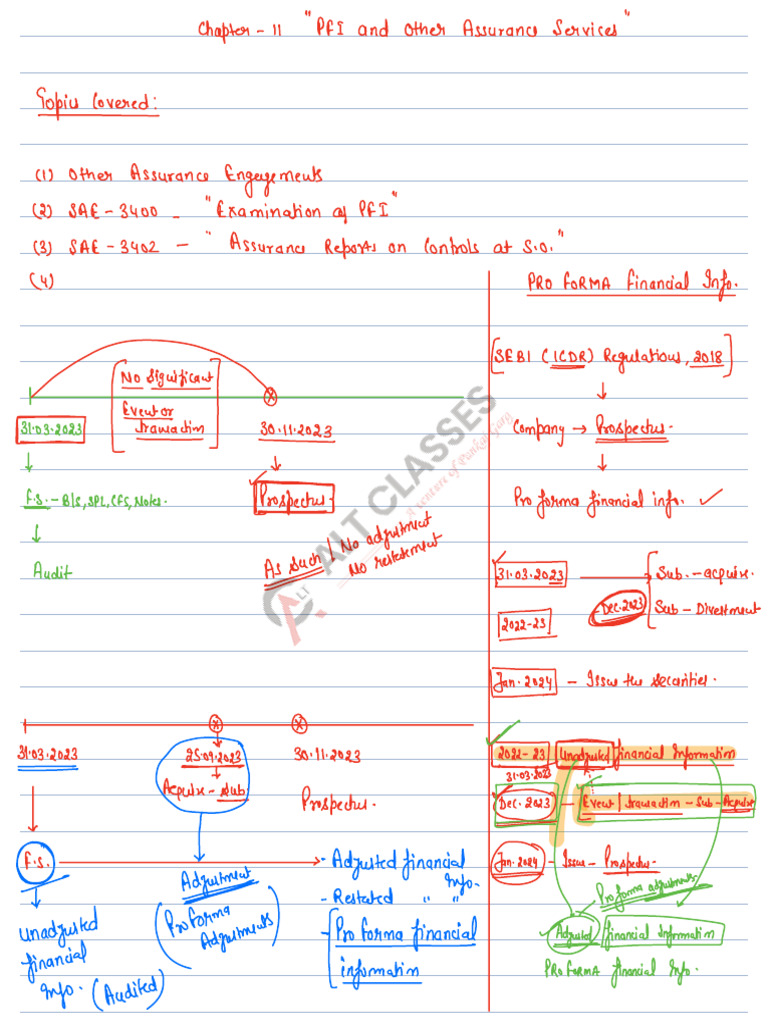 Chapter - 11 "PFI and Other Assurance Services"
Topics Covered:
(1) Other Assurance Engagements
(2) SAE - 3400 - "Examination of PFI"
(3) SAE - 3402 - "Assurance Reports on Controls at S.O."
(4)
No Significant
Event or
transaction
31.03.2023
30.11.2023
F.S. - B/S, SPL, CFS, Notes.
Prospectus.
Audit
As Such / No adjustment
No restatement
31.03.2023
25.09.2023
30.11.2023
Acquire - Sub
Prospectus.
F.S.
Adjustment
(Pro forma
Adjustments)
- Adjusted financial
Info.
- Restated " "
- Pro forma financial
information
Unadjusted
financial
Info. (Audited)
PRO FORMA Financial Info.
[SEBI (ICDR) Regulations, 2018]
Company → Prospectus.
Pro forma financial info. ✓
31.03.2023
Sub. - acquire.
Dec. 2023
Sub - Divestment
2022-23
Jan. 2024 - Issue the securities.
2022-23 Unadjusted financial Information
31.03.2023
Dec. 2023 - Event / transaction - Sub - Acquire
Jan. 2024 - Issue - Prospectus.
Pro forma adjustments
Adjusted financial Information
PRO FORMA financial Info.
ALT CLASSES
A venture of Pankaj Garg
ALT